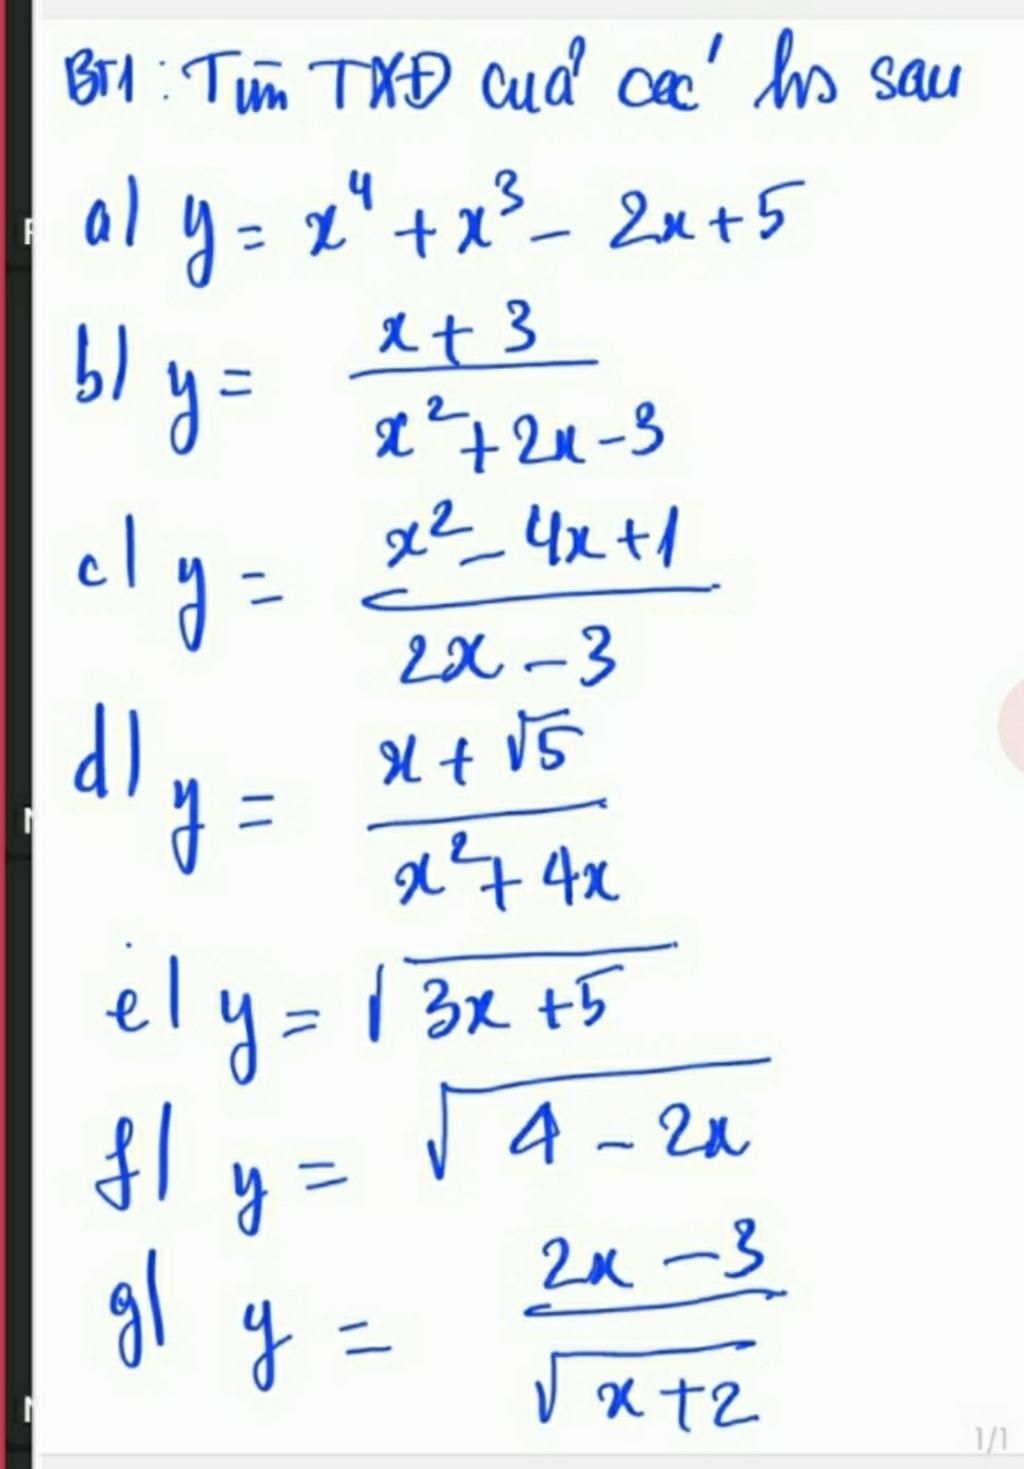 BT1: Tìm TXĐ của các hs sau
a) y = x⁴ + x³ - 2x + 5
b) y = (x + 3)/(x² + 2x - 3)
c) y = (x² - 4x + 1)/(2x - 3)
d) y = (x + √5)/(x² + 4x)
e) y = √(3x + 5)
f) y = √(4 - 2x)
g) y = (2x - 3)/√(x + 2)
1/1